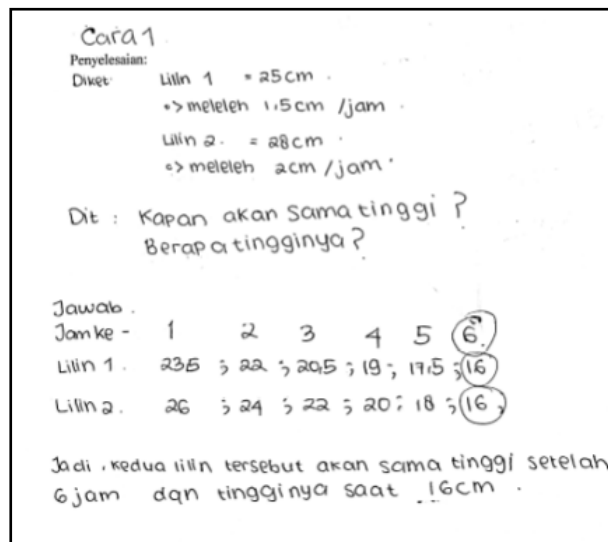 Cara 1
Penyelesaian:
Diket Lilin 1 = 25 cm .
=> meleleh 1,5 cm /jam .
Lilin 2. = 28 cm .
=> meleleh 2 cm /jam .
Dit : Kapan akan sama tinggi ?
Berapa tingginya ?
Jawab .
Jam ke - 1 2 3 4 5 6.
Lilin 1. 23,5 ; 22 ; 20,5 ; 19 ; 17,5 ; 16
Lilin 2. 26 ; 24 ; 22 ; 20 ; 18 ; 16,
Jadi , kedua lilin tersebut akan sama tinggi setelah
6 jam dan tingginya saat 16 cm .